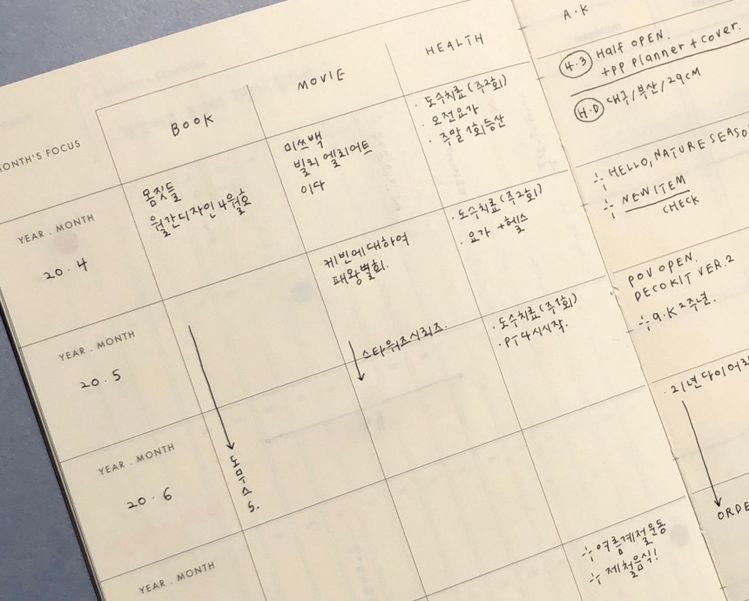 MONTH'S FOCUS
BOOK
MOVIE
HEALTH
YEAR . MONTH
20 . 4
몸짓들
월간디자인 4월호
미쓰백
빌리 엘리어트
이다
· 도수치료 (주2회)
· 오전요가
· 주말 1회등산
YEAR . MONTH
20 . 5
케빈에 대하여
패왕별희.
· 도수치료 (주2회)
· 요가 + 헬스
YEAR . MONTH
20 . 6
도무스
5.
스타워즈시리즈.
· 도수치료 (주1회)
· PT 다시시작.
YEAR . MONTH
여름계절운동
제철음식!
A.K
4.3 Half OPEN.
+PP Planner + cover.
H.D 대구/부산/29CM
HELLO, NATURE SEASO
NEW ITEM
CHECK
POV OPEN,
DECOKIT VER.2
a.K 2주년.
· 21년다이어리
ORDE